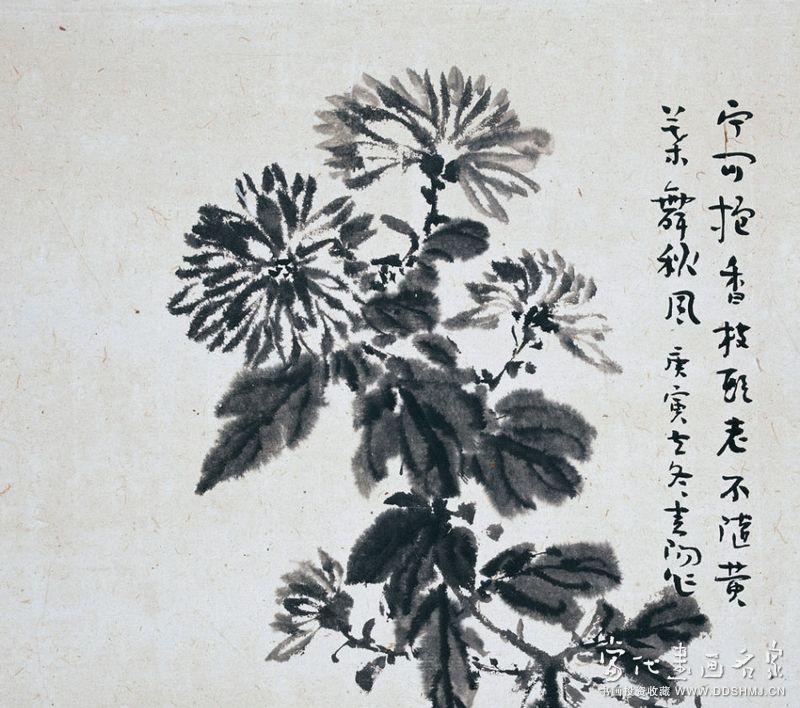 宁可抱香枝头老不随黄
叶舞秋风 庚寅之冬 青阳作
当代书画名家
书画投资收藏 WWW.DDSHMJ.CN